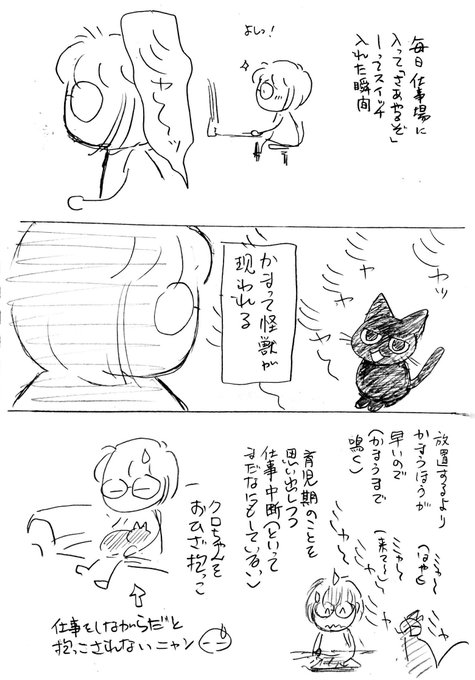 毎日仕事場に
入って「さあやるぞ」
ーってスイッチ
入れた瞬間
よしっ!
ミャーッ
ミャー
かまって怪獣が
現われる
放置するより
かまうほうが
早いので
(かまうまで
鳴く)
ミャー
(はやく)
ミャー
(来て〜)
ミャー
育児期のことを
思い出しつつ
仕事中断(といって
まだなにもしていない)
クロちゃんを
おひざ抱っこ
仕事をしながらだと
抱っこされないニャン